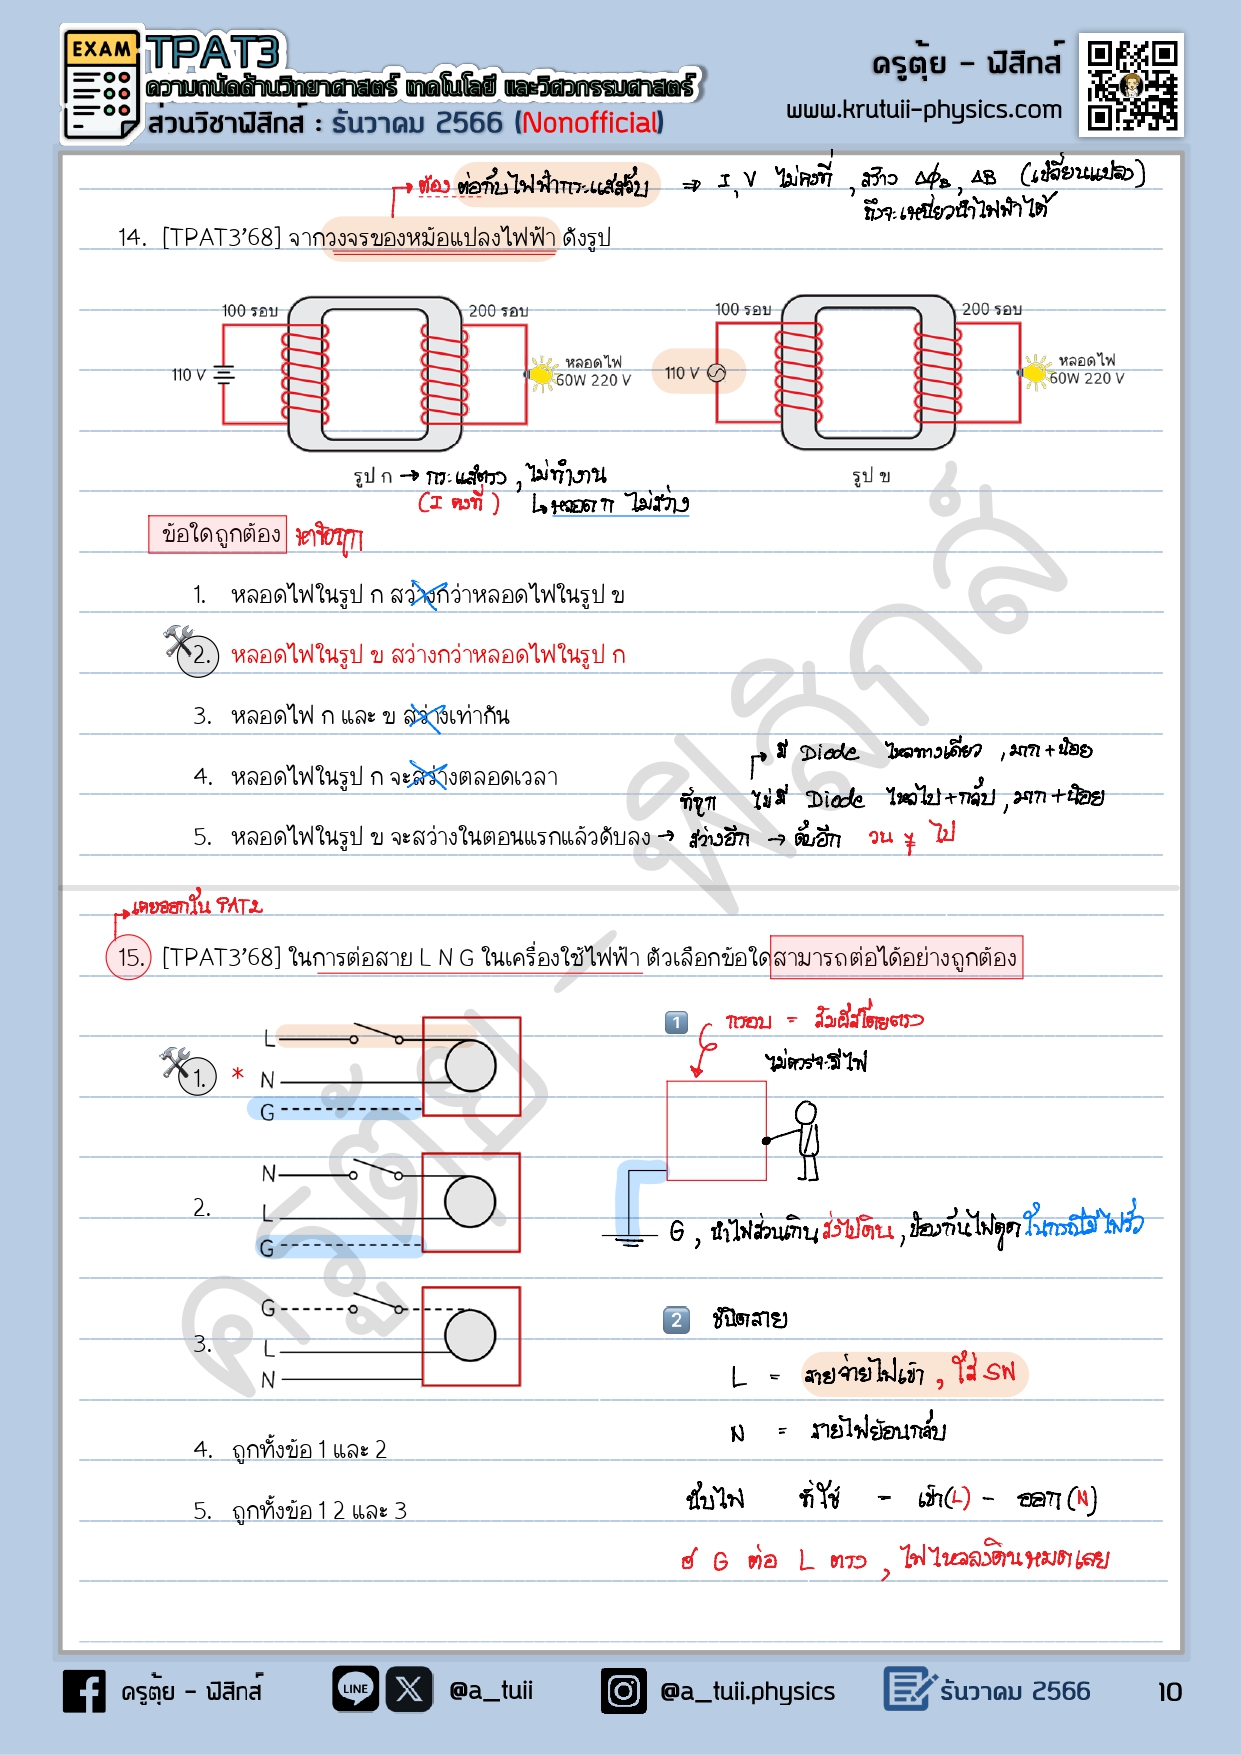 EXAM
TPAT3
ความถนัดด้านวิทยาศาสตร์ เทคโนโลยี และวิศวกรรมศาสตร์
ส่วนวิชาฟิสิกส์ : ธันวาคม 2566 (Nonofficial)
ครูตุ้ย - ฟิสิกส์
www.krutuii-physics.com
ต้อง ต่อกับไฟฟ้ากระแสสลับ ⇒ I, V ไม่คงที่, สร้าง ΔΦB, ΔB (เปลี่ยนแปลง)
ถึงจะเหนี่ยวนำไฟฟ้าได้
14. [TPAT3'68] จากวงจรของหม้อแปลงไฟฟ้า ดังรูป
100 รอบ 200 รอบ 100 รอบ 200 รอบ
110 V หลอดไฟ 60W 220 V 110 V หลอดไฟ 60W 220 V
รูป ก → กระแสตรง, ไม่ทำงาน รูป ข
(I คงที่) ↳ หลอด ก ไม่สว่าง
ข้อใดถูกต้อง หาข้อถูก
1. หลอดไฟในรูป ก สว่างกว่าหลอดไฟในรูป ข
2. หลอดไฟในรูป ข สว่างกว่าหลอดไฟในรูป ก
3. หลอดไฟ ก และ ข สว่างเท่ากัน
→ มี Diode ไหลทางเดียว, มาก+น้อย
4. หลอดไฟในรูป ก จะสว่างตลอดเวลา
ไม่มี Diode ไหลไป+กลับ, มาก+น้อย
5. หลอดไฟในรูป ข จะสว่างในตอนแรกแล้วดับลง → สว่างอีก → ดับอีก วน ๆ ไป
เคยออกใน PAT2
15. [TPAT3'68] ในการต่อสาย L N G ในเครื่องใช้ไฟฟ้า ตัวเลือกข้อใดสามารถต่อได้อย่างถูกต้อง
1. *
L
N
G
2.
N
L
G
3.
G
L
N
4. ถูกทั้งข้อ 1 และ 2
5. ถูกทั้งข้อ 1 2 และ 3
1 กรอบ = สัมผัสโดยตรง
ไม่ควรจะมีไฟ
G, นำไฟส่วนเกินส่งไปดิน, ป้องกันไฟดูด ในกรณีมีไฟรั่ว
2 ชนิดสาย
L = สายจ่ายไฟเข้า, ใส่ SW
N = สายไฟย้อนกลับ
นับไฟ ที่ใช้ - เข้า(L) - ออก(N)
G ต่อ L ตรง, ไฟไหลลงดินหมดเลย
ครูตุ้ย - ฟิสิกส์
ครูตุ้ย - ฟิสิกส์
LINE
@a_tuii
@a_tuii.physics
ธันวาคม 2566
10